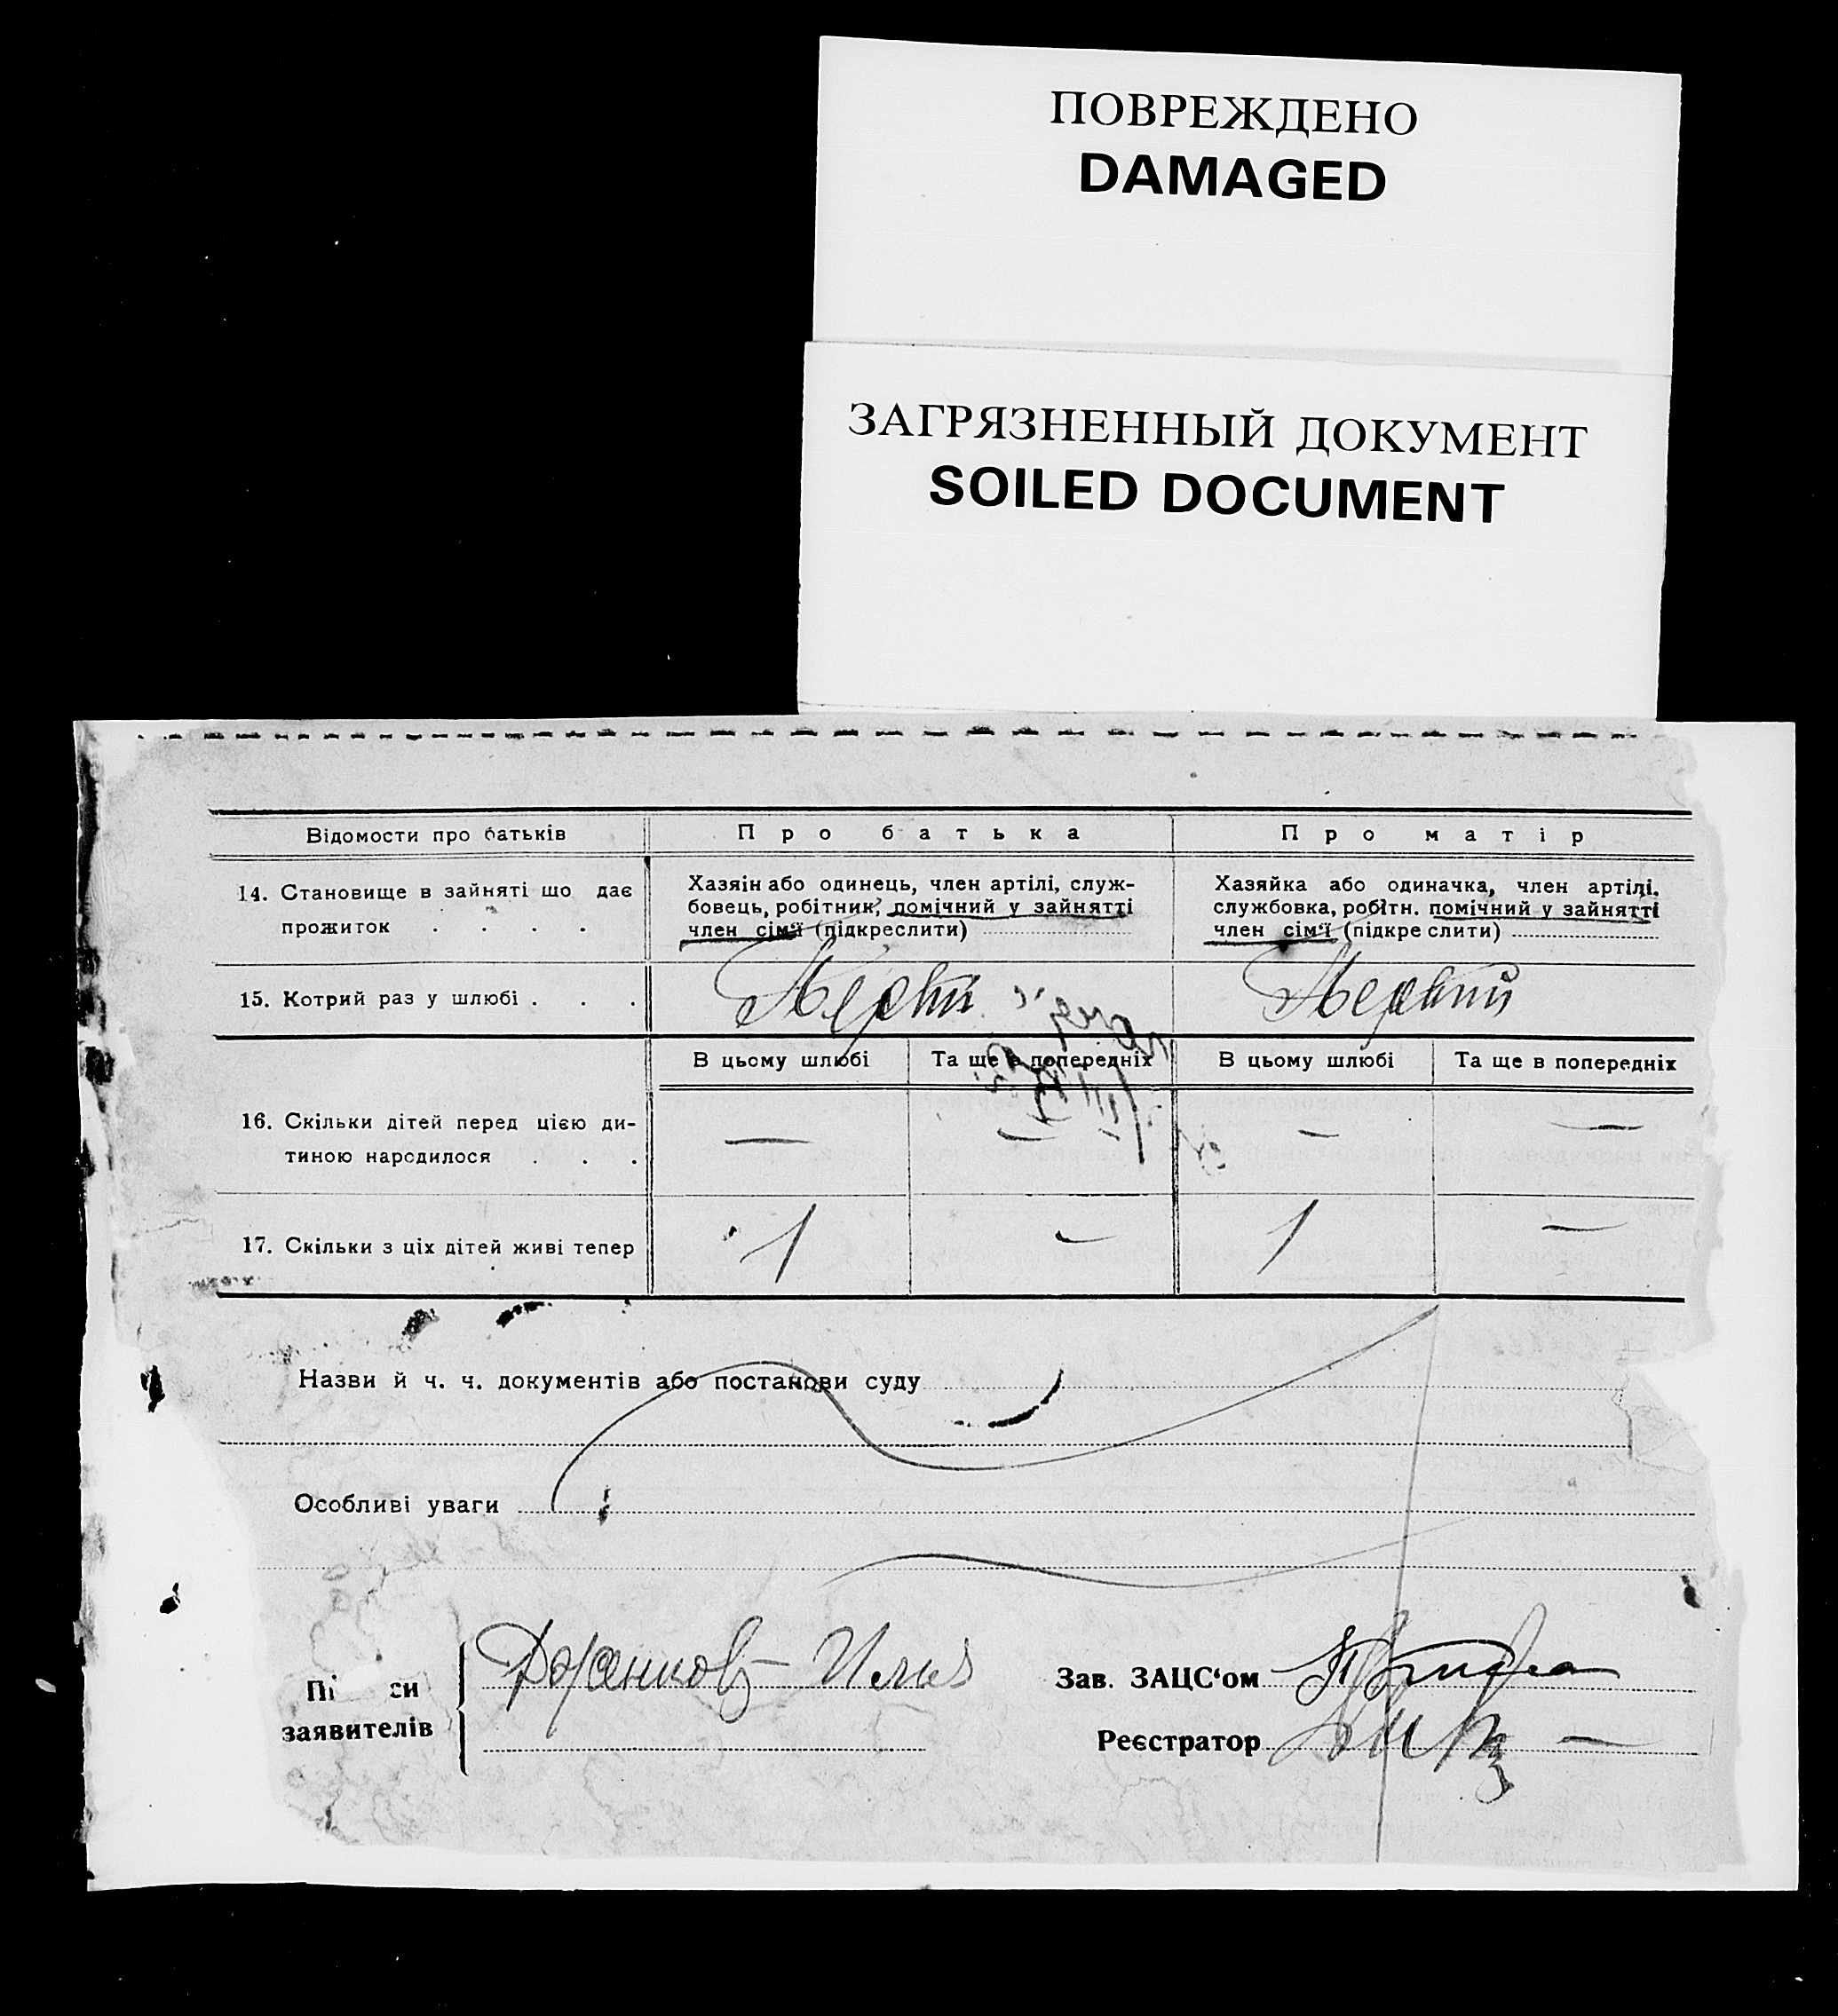 ПОВРЕЖДЕНО
DAMAGED
ЗАГРЯЗНЕННЫЙ ДОКУМЕНТ
SOILED DOCUMENT
Відомости про батьків Про батька Про матір
14. Становище в зайняті що дає
прожиток . . . .
Хазяін або одинець, член артілі, служ-
бовець, робітник, помічний у зайнятті
член сім'ї (підкреслити)
Хазяйка або одиначка, член артілі,
службовка, робітн. помічний у зайнятті
член сім'ї (підкреслити)
15. Котрий раз у шлюбі . . . Первий
В цьому шлюбі Та ще в попередніх В цьому шлюбі Та ще в попередніх
16. Скільки дітей перед цією ди-
тиною народилося . . . — — — —
17. Скільки з ціх дітей живі тепер 1 — 1 —
Назви й ч. ч. документів або постанови суду
Особливі уваги
Пі си
заявителів
Илья
Зав. ЗАЦС‘ом
Реєстратор